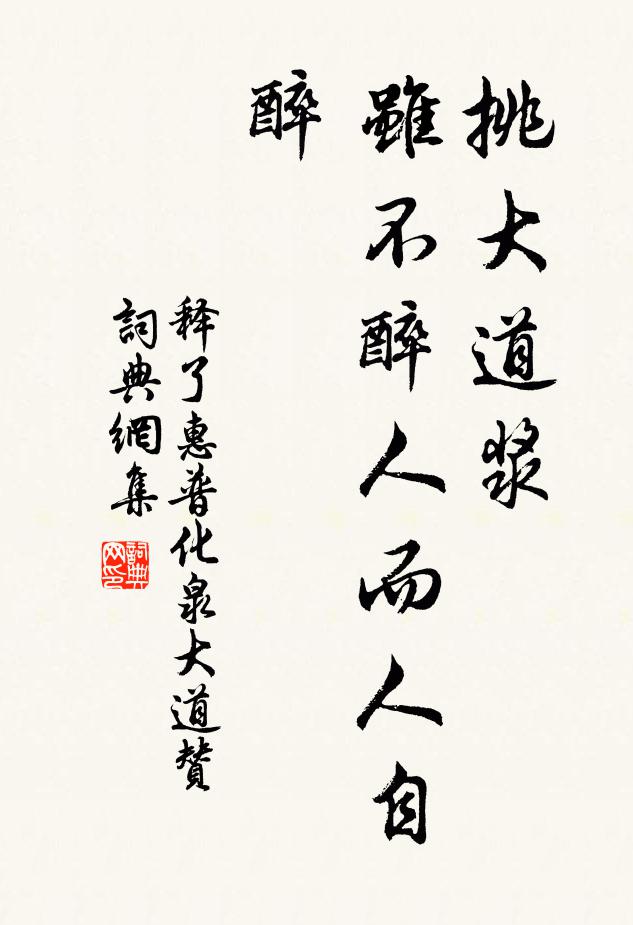 挑大道漿
雖不醉人而人自
醉
释了惠普化泉大道贊
詞典網集
詞典网印